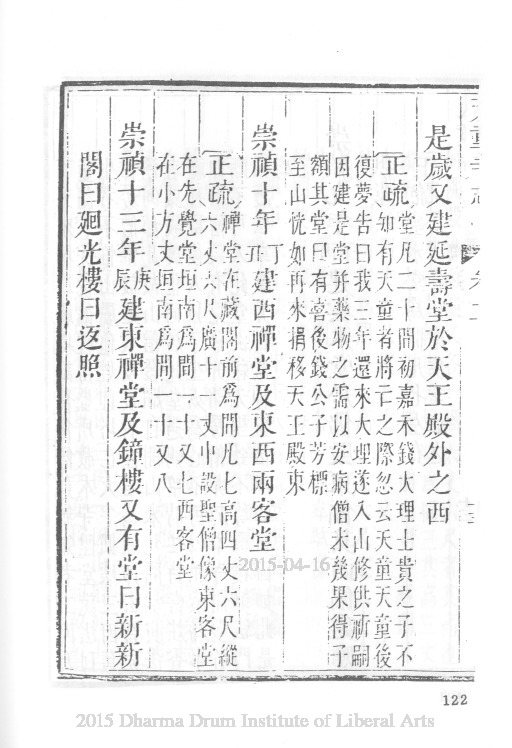 是歲又建延壽堂於天王殿外之西
正疏堂凡二十間初嘉禾錢大理士貴之子不
知有天童者將亡之際忽云天童天童後
復夢告曰我三年還來大理遂入山修供祈嗣
因建是堂并藥物之需以安病僧未幾果得子
額其堂曰有喜後錢公子芳標
至山恍如再來捐移天王殿東
崇禎十年丁丑建西禪堂及東西兩客堂
正疏禪堂在藏閣前爲間凡七高四丈六尺縱
六丈六尺廣十一丈中設聖僧像東客堂
在先覺堂垣南爲間二十又七西客堂
在小方丈垣南爲間一十又八
崇禎十三年庚辰建東禪堂及鐘樓又有堂曰新新
閣曰廻光樓曰返照
2015-04-16
122
2015 Dharma Drum Institute of Liberal Arts